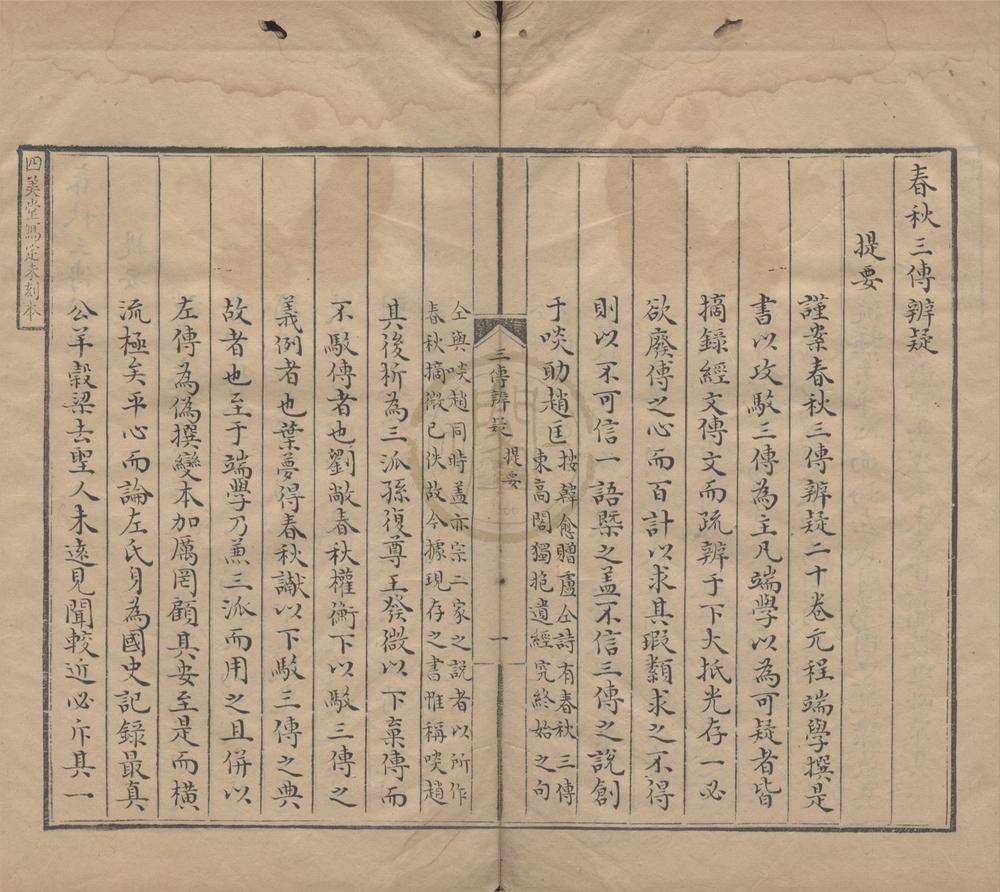 春秋三傳辨疑
提要
謹案春秋三傳辨疑二十卷元程端學撰是
書以攻駁三傳為主凡端學以為可疑者皆
摘錄經文傳文而疏辨于下大抵先存一必
欲廢傳之心而百計以求其瑕纇求之不得
則以不可信一語槩之盖不信三傳之說創
于啖助趙匡
按韓愈贈盧仝詩有春秋三傳
東高閣獨抱遺經究終始之句
三傳辨疑 提要
一
仝與啖趙同時盖亦宗二家之說者以所作
春秋摘微已佚故今據現存之書惟稱啖趙
其後析為三派孫復尊王發微以下棄傳而
不駁傳者也劉敞春秋權衡下以駁三傳之
義例者也葉夢得春秋讞以下駁三傳之典
故者也至于端學乃兼三派而用之且併以
左傳為偽撰變本加厲罔顧其安至是而橫
流極矣平心而論左氏身為國史記錄最真
公羊穀梁去聖人未遠見聞較近必斥其一
四美堂寫定未刻本